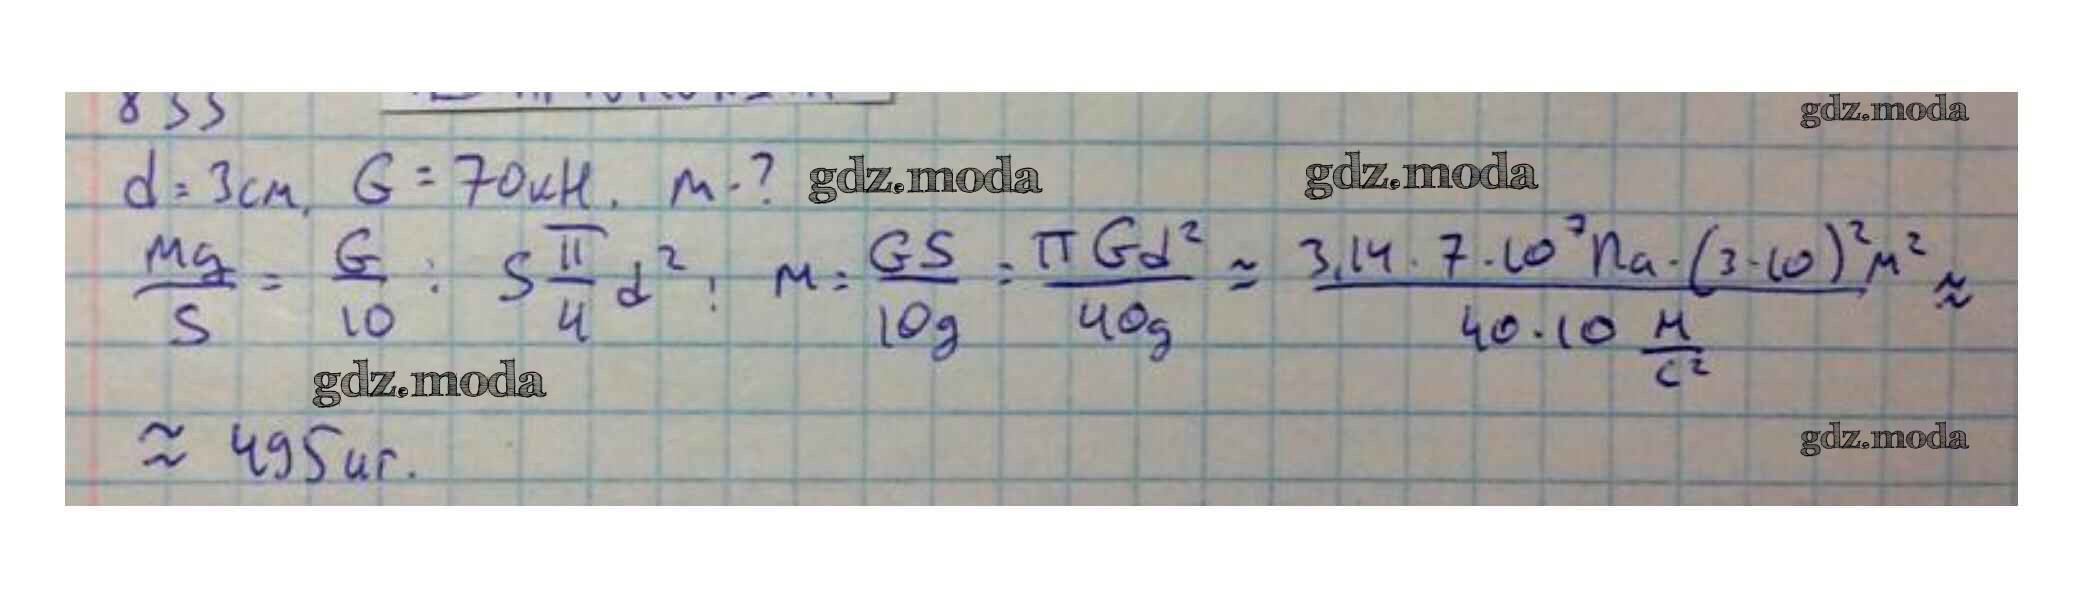 833
gdz.moda
d = 3см, G = 70кН. м-? gdz.moda gdz.moda
mg/S = G/10 ; S π/4 d² ; м = GS/10g = πGd²/40g ≈ 3,14 · 7 · 10⁷ Па · (3·10)² м² / 40 · 10 м/с² ≈
gdz.moda
≈ 495 кг.
gdz.moda